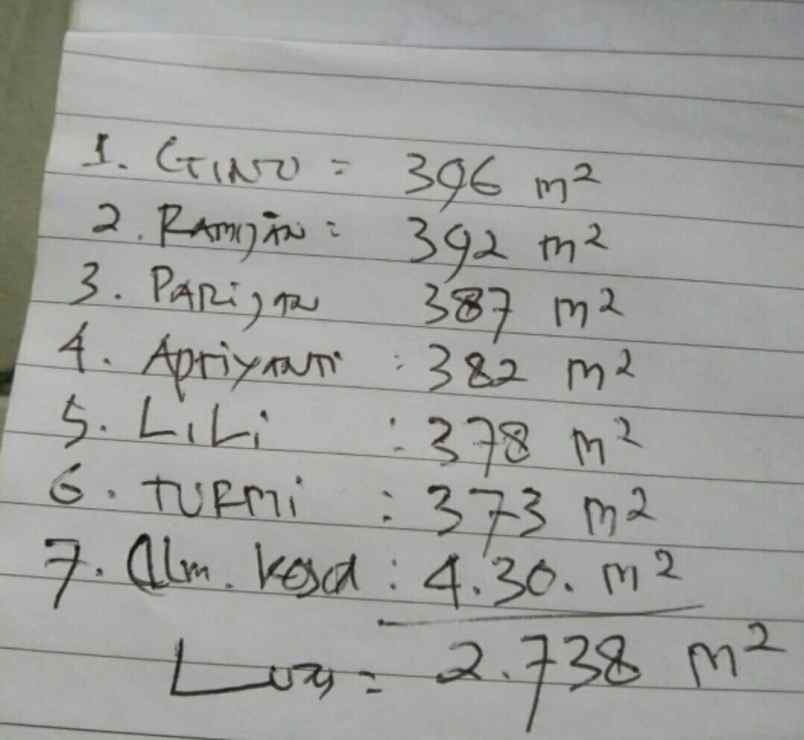 1. GINO = 396 m²
2. RAMIJAN = 392 m²
3. PARIJAN 387 m²
4. Apriyanti : 382 m²
5. LiLi : 378 m²
6. TURMi : 373 m²
7. Alm. : 4.30. m²
Luas = 2.738 m²